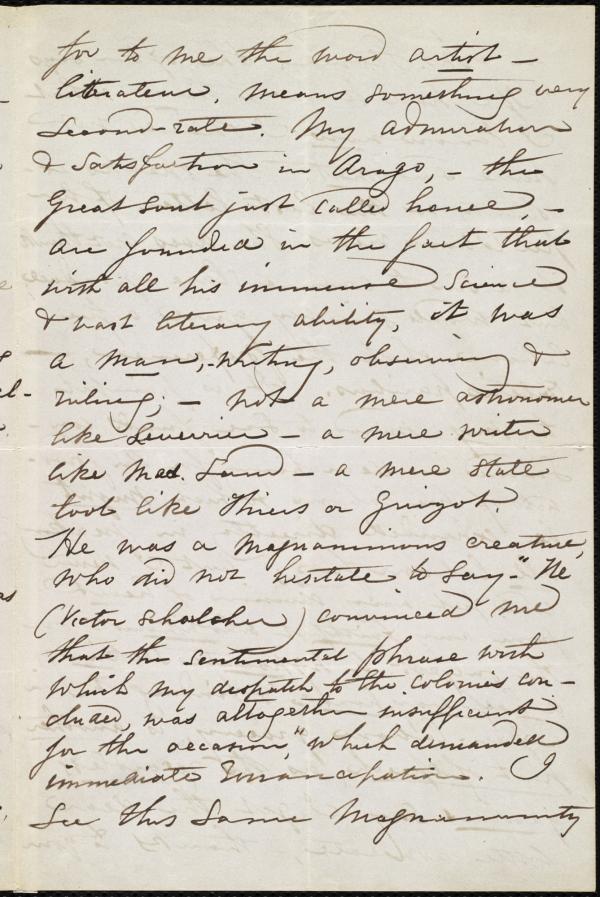 for to me the word artist –
literateur, means something very
second-rate. My admiration
& satisfaction in Arago, – the
great soul just called hence, –
are founded in the fact that
with all his immense science
& vast literary ability, it was
a man, – writing, observing &
ruling; – not a mere astronomer
like Leverrier – a mere writer
like Mad. Sand – a mere state
tool like Thiers or Guizot.
He was a magnanimous creature,
who did not hesitate to say – "He
(Victor Schœlcher) convinced me
that the sentimental phrase with
which my despatch to the colonies con-
cluded, was altogether insufficient
for the occasion," which demanded
immediate Emancipation. I
see this same magnanimity